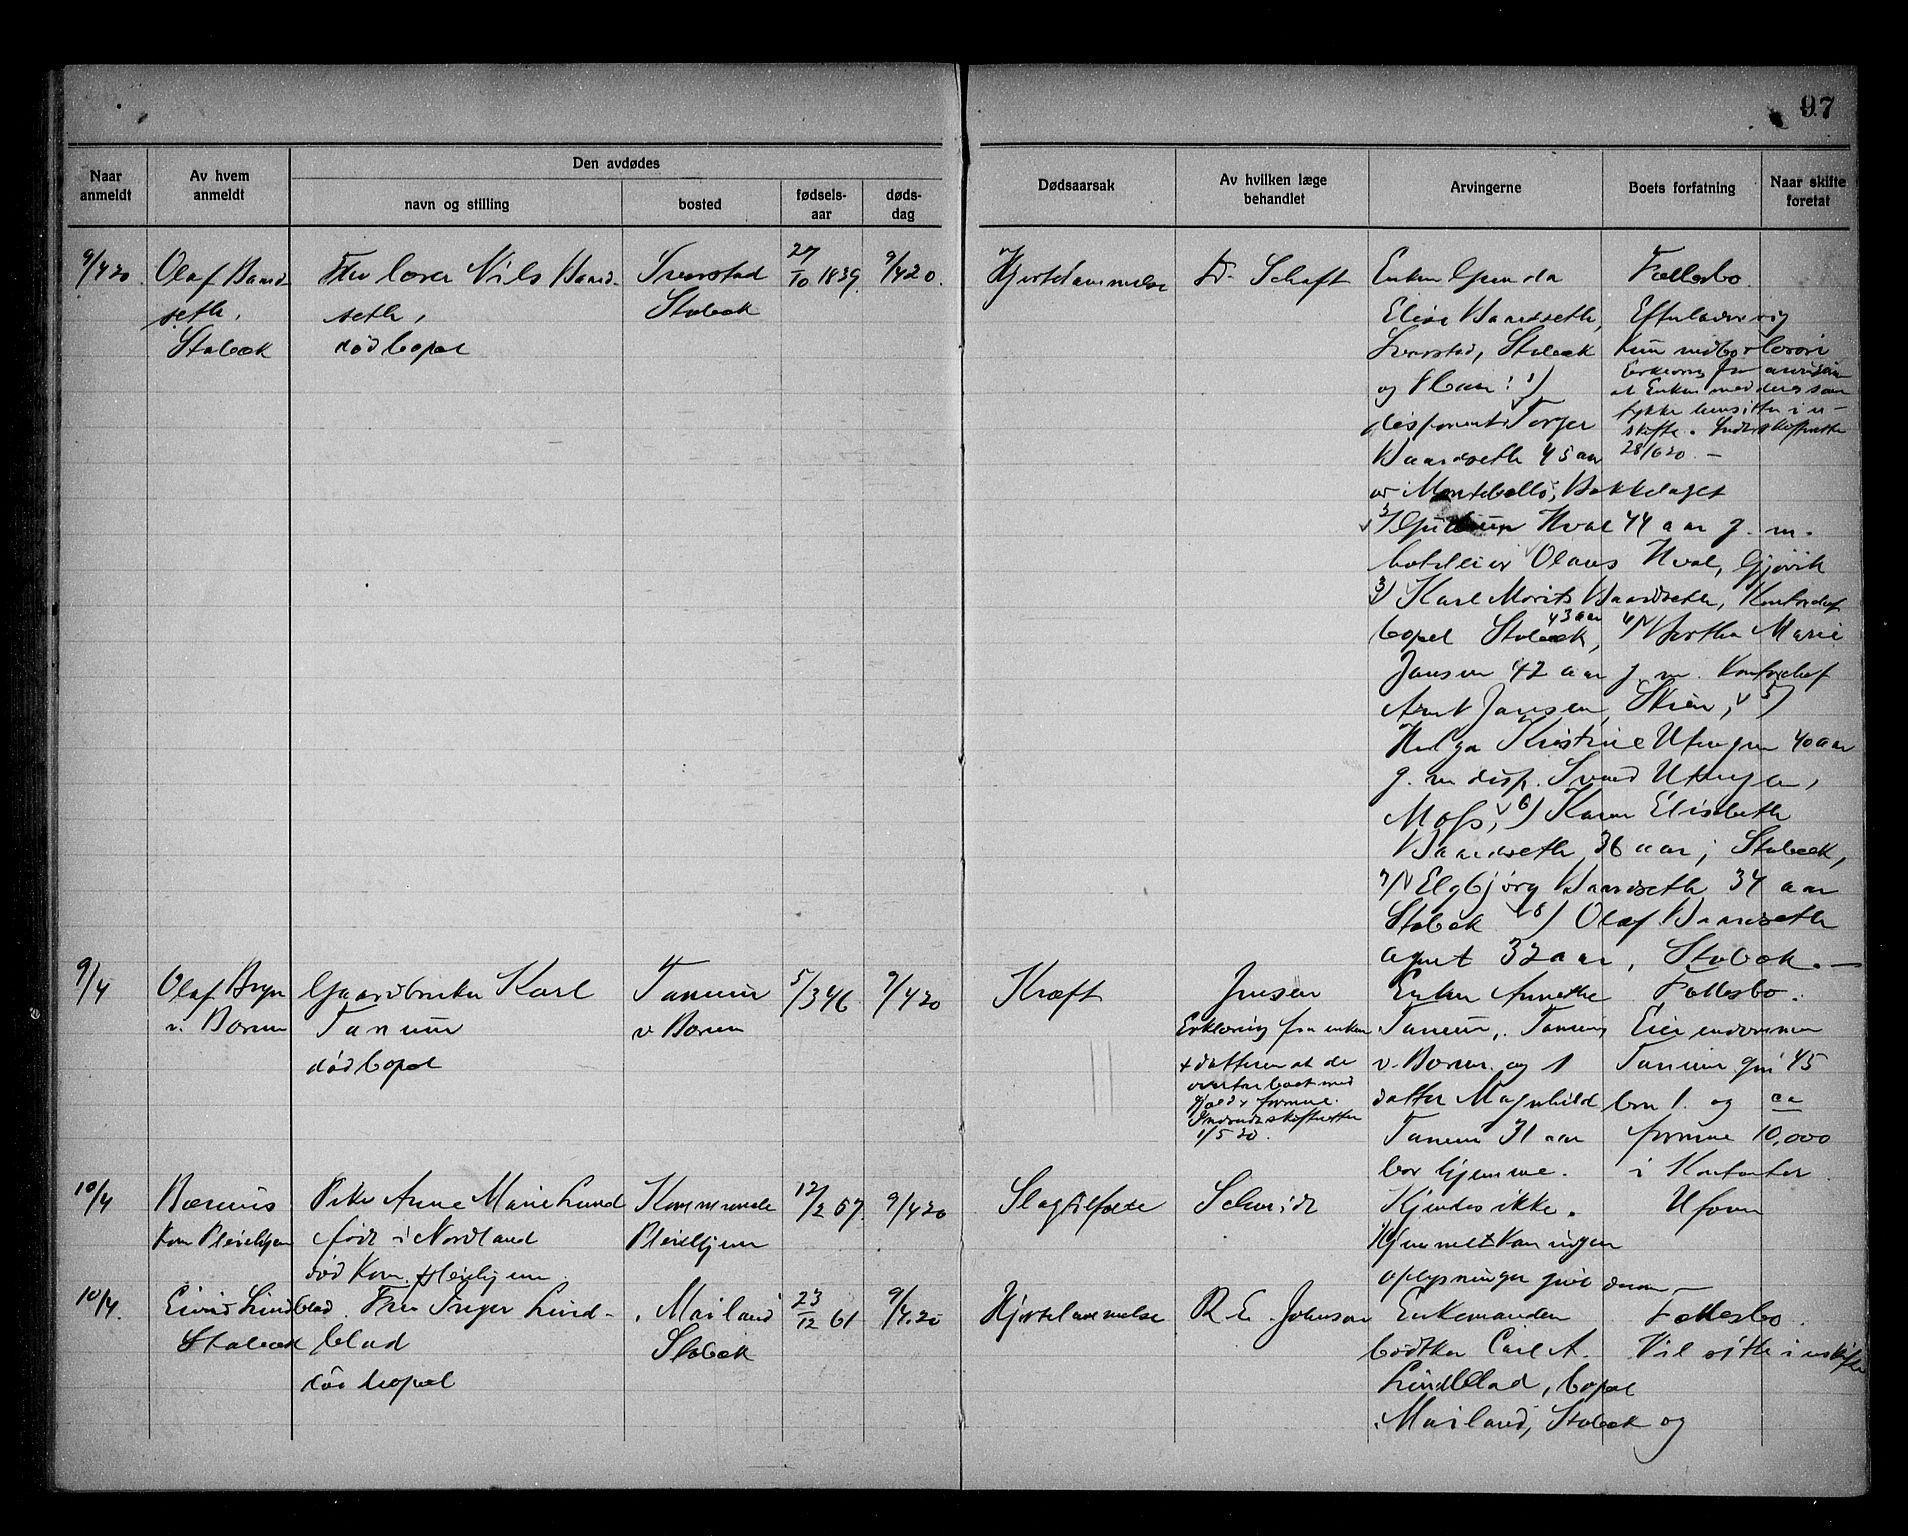 97
Naar anmeldt
Av hvem anmeldt
Den avdødes
navn og stilling
bosted
fødsels-aar
døds-dag
Dødsaarsak
Av hvilken læge behandlet
Arvingerne
Boets forfatning
Naar skifte foretat
9/4 20
Olaf Baard
seth,
Stabæk
Fhv lærer Nils Baard-
seth,
død bopæl
Stabæk
27/10 1839
9/4 20.
Hjertelammelse
Dr. Schaft
Enken Gunda
Elise Baardseth,
Stabæk
og 8 barn: 1)
disponent Torger
Baardseth 45 aar
Montebello, Bækkelaget
2) Gudrun Hval 44 aar g. m.
hotelleier Olaus Hval, Gjøvik
3) Karl Morits Baardseth, Kontorchef
43 aar
bopæl Stabæk, 4) Bertha Marie
Jansen 42 aar g. m. Kontorchef
Arnt Jansen, Skien, 5)
Helga Kristine 40 aar
g. m. disp.
Moss, 6) Karen Elisabeth
Baardseth 36 aar, Stabæk,
7) Elgbjørg Baardseth 34 aar
Stabæk 8) Olaf Baardseth
agent 32 aar, Stabæk. —
Fællesbo.
Efterlader sig
kun indbo + løsøre
Erklæring fra arvingerne
at Enken med deres sam
tykke hensitter i u-
skifte. Indr. skifteretten
28/6 20. —
9/4
Olaf Bryn
v. Bærum
Gaardbruker Karl
Tanum
død bopæl
Tanum
v Bærum
5/3 46
7/4 20
Kræft
Jensen
Erklæring fra enken
+ datteren at de
overtar boet med
gjæld + formue.
Indsendt skifteretten
1/5 20.
Enken Annethe
Tanum, Tanum
v. Bærum. og 1
datter Magnhild
Tanum 31 aar
bor hjemme.
Fællesbo.
Eier eiendommen
Tanum gnr 45
bnr 1. og ca
formue 10,000
i Kontanter
10/4
Bærums
Kom Pleiehjem
Pike Anne Marie Lund
født i Nordland
død Kom. Pleiehjem.
Kommunale
Pleiehjem
12/2 57.
9/4 20
Slagtilfælde
Schmidt
Kjendes ikke.
Hjemmet kan ingen
oplysninger give derom —
Uform
10/4.
Eivind Lindblad
Stabæk
Fru Inger Lind-
blad
død bopæl
Mailand
Stabæk
23/12 61
9/4.20
Hjertelammelse
R. E. Johnson
Enkemanden
bødker Carl A.
Lindblad, bopæl
Mailand, Stabæk og
Fællesbo.
Vil sitte i uskifte